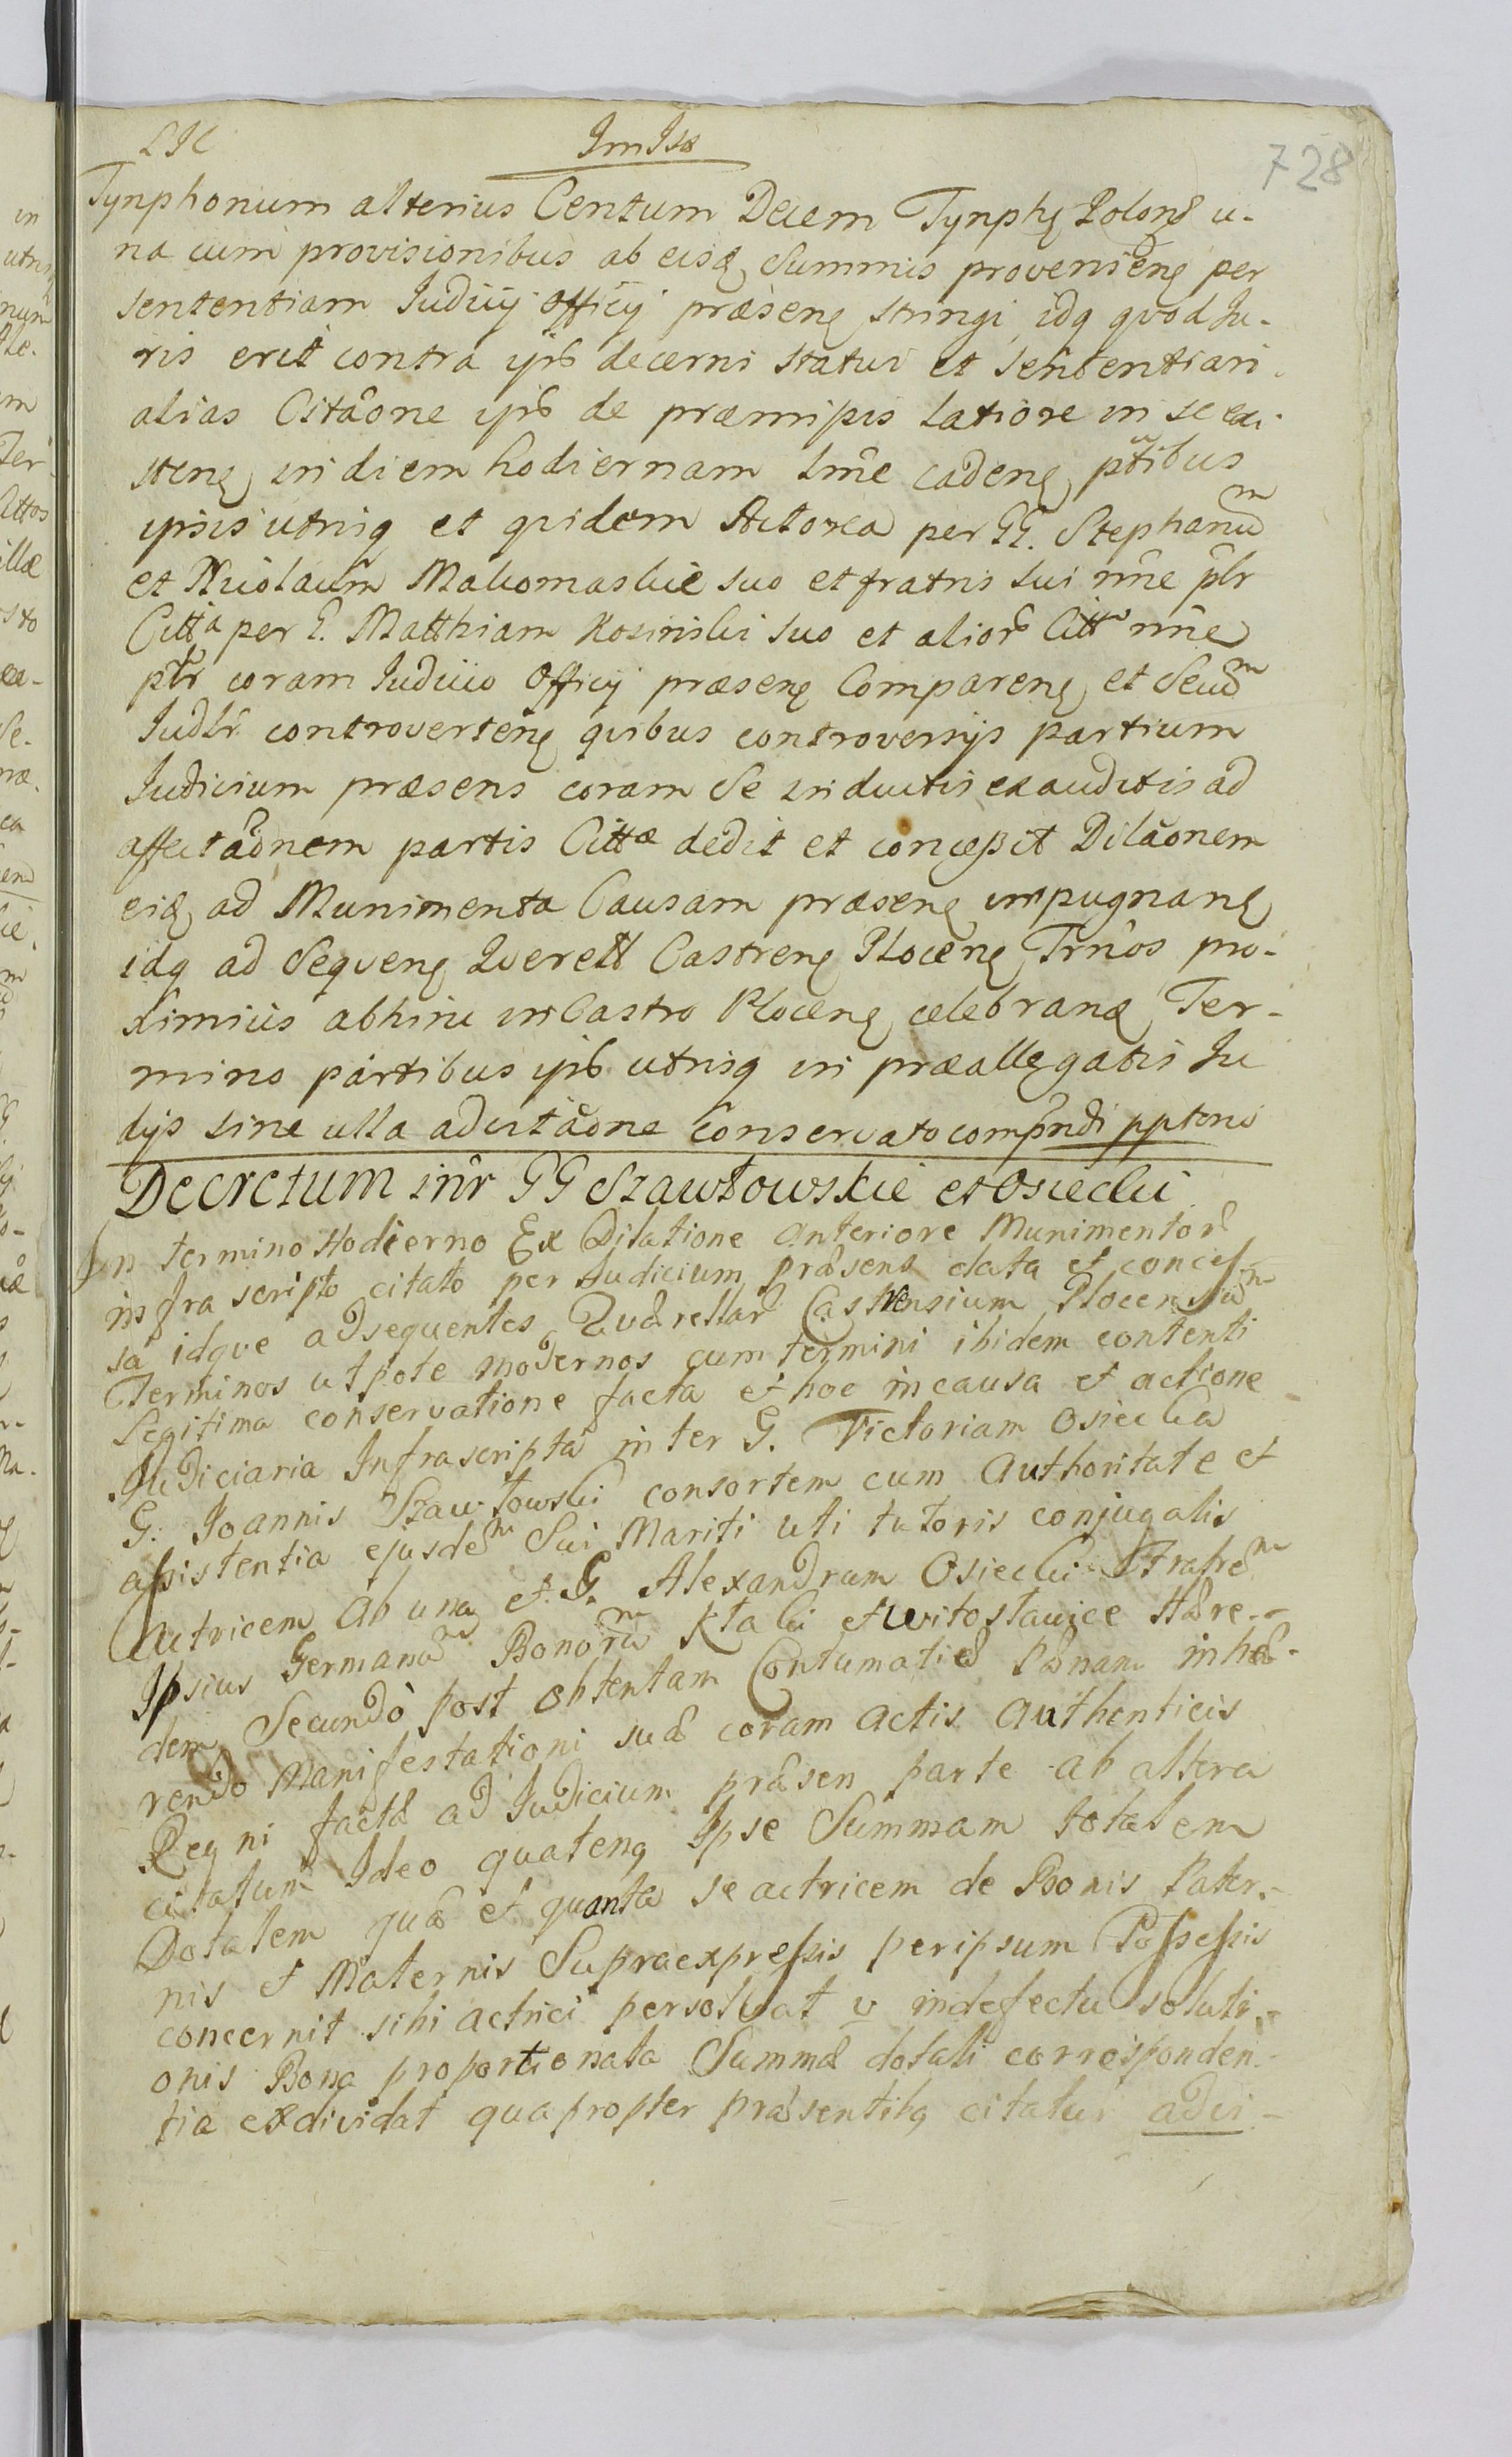 728
Tynphonium alterius Centum Decem Tynphę Polong u-
na cum provisionibus ab eisd, Summis provenieng per
sententiam Judicij Officij præseng stringi idq qvod Ju-
ris erit contra ipś decerni statui et sententiari
alias Citãone ipś de præmißis latiore in se exi-
steng in diem hodiernam lme cadeng ptibus
ipsis utrisq et qvidem Actorea per GG. Stephanum
et Nicolaum Makomaskie suo et fratris sui nñe plr
Citta per G. Matthiam Kosinski suo et alior Citt nñe
plr coram Judicio Officij præseng Compareng et Secum
Judlr controverteng qvibus controversijs partium
Judicium præsens coram Se inductis exauditis ad
affectãonem partis Cittæ dedit et conceßit Dilãonem
eid, ad Munimenta Causam præseng impugnang
idq ad Seqveng Qverell Castreng Ploceng Trños pro-
ximius abhinc in Castro Ploceng celebrand Ter-
mino partibus ipś utrisq in præallegatis Ju
dijs sine ulla adcitãone conservato compñdi pptorio
Decretum inr GG Szawłowskie et Osiecki
In termino Hodierno Ex Dilatione anteriore Munimentor
infra scripto citato per Judicium præsens data et conces-
sa idqve ad sequentes Qværellar Castrensium Plocensium
Terminos utpote modernos cum termini ibidem contenti
Legitima conservatione facta et hoc in causa et actione
Judiciaria Infrascripta inter G. Victoriam Osiecka
G. Joannis Szawłowski consortem cum authoritate et
aßistentia ejusdem Sui Mariti uti tutoris conjugalis
Actricem ab una et G. Alexandrum Osiecki Fratrem
Ipsius Germanum Bonorum Ktaki et Witosławice Hære-
dem Secundo post obtentam Contumatiæ Pænam inhæ-
rendo Manifestationi suæ coram actis authenticis
Regni factæ ad Judicium præsen parte ab altera
citatum Ideo quatenq Ipse Summam totalem
Dotalem quæ et quanta se actricem de Bonis Pater-
nis et Maternis Supraexpreßis per ipsum Poßeßis
concernit sibi actrici persolvat v in defectu soluti-
onis Bona proportionata Summæ dotali corresponden-
tia exdividat quapropter præsentibq citatur adci-